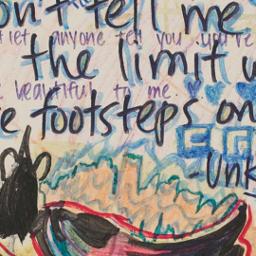 on't tell me
let anyone tell you you're
the limit w
beautiful to me.
e footsteps on
-Unk